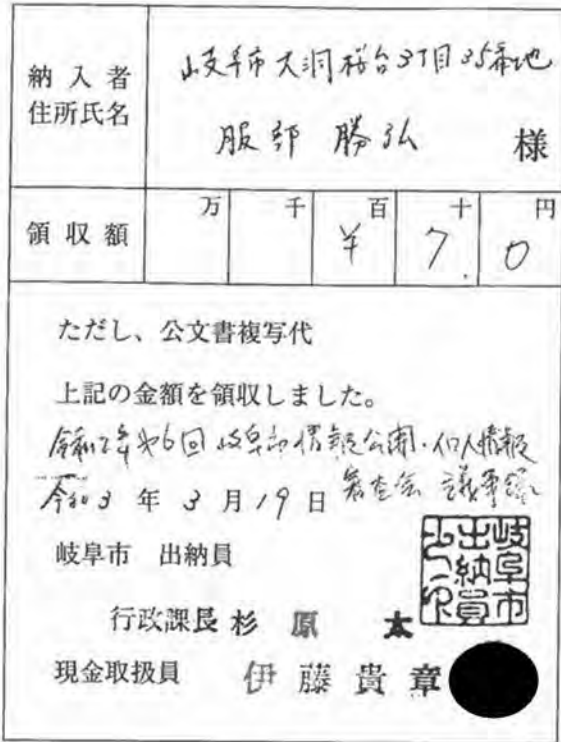 納入者
住所氏名
岐阜市大洞桜台3丁目35番地
服部 勝弘 様
領収額
万 千 百 十 円
¥ 7. 0
ただし、公文書複写代
上記の金額を領収しました。
令和2年第6回 岐阜市情報公開・個人情報
審査会 議事録
令和3年3月19日
岐阜市 出納員
岐阜市出納員之印
行政課長 杉原 太
現金取扱員 伊藤貴章